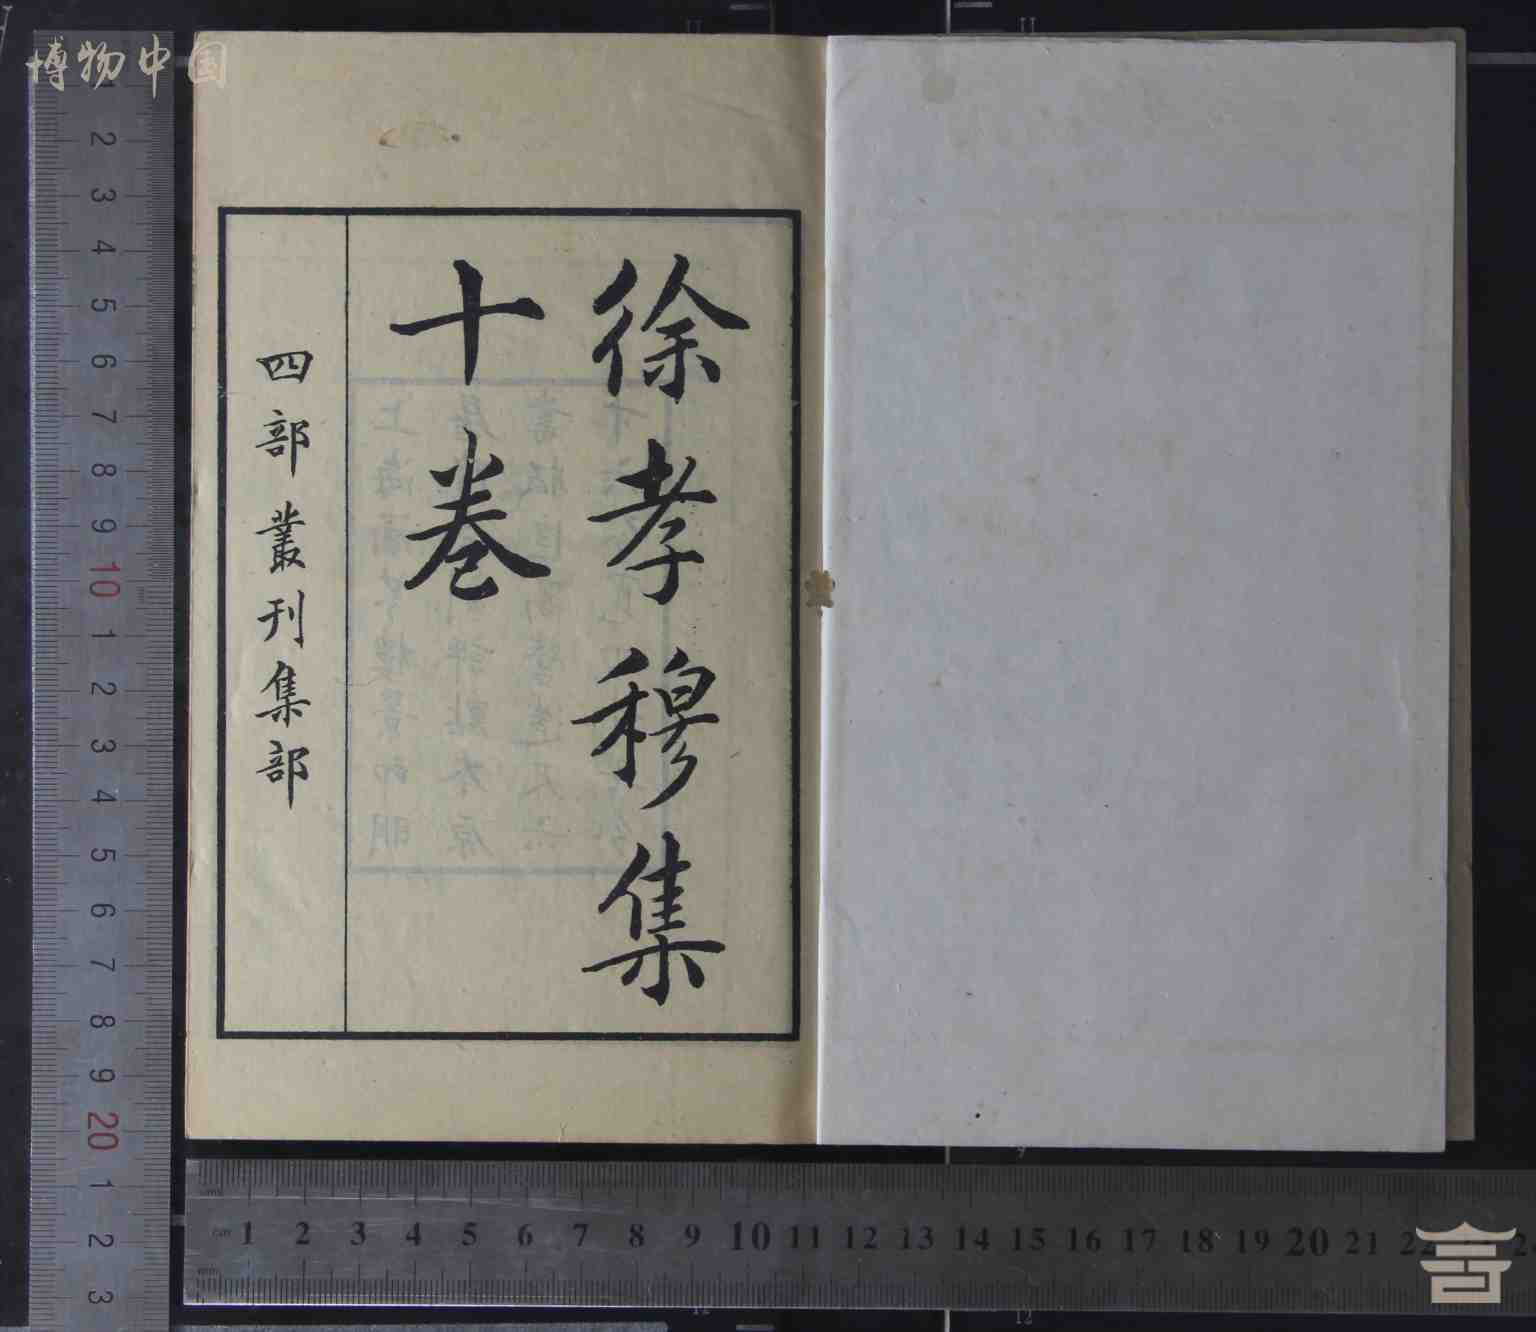 博物中国
徐孝穆集
十卷
四部叢刊集部
2
3
4
5
6
7
8
9
10
1
2
3
4
5
6
7
8
9
20
1
2
3
cm 1 2 3 4 5 6 7 8 9 10 11 12 13 14 15 16 17 18 19 20 21